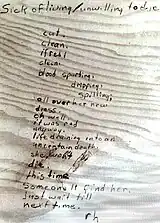 Sick of living / unwilling to die
cut.
clean.
if red
clean.
blood spurting.
dripping.
spilling,
all over her new
dress.
oh well
it was red
anyway.
life draining into an
uncertain death.
she won't
die
this time
someone ll find her.
just wait till
next time.
rh